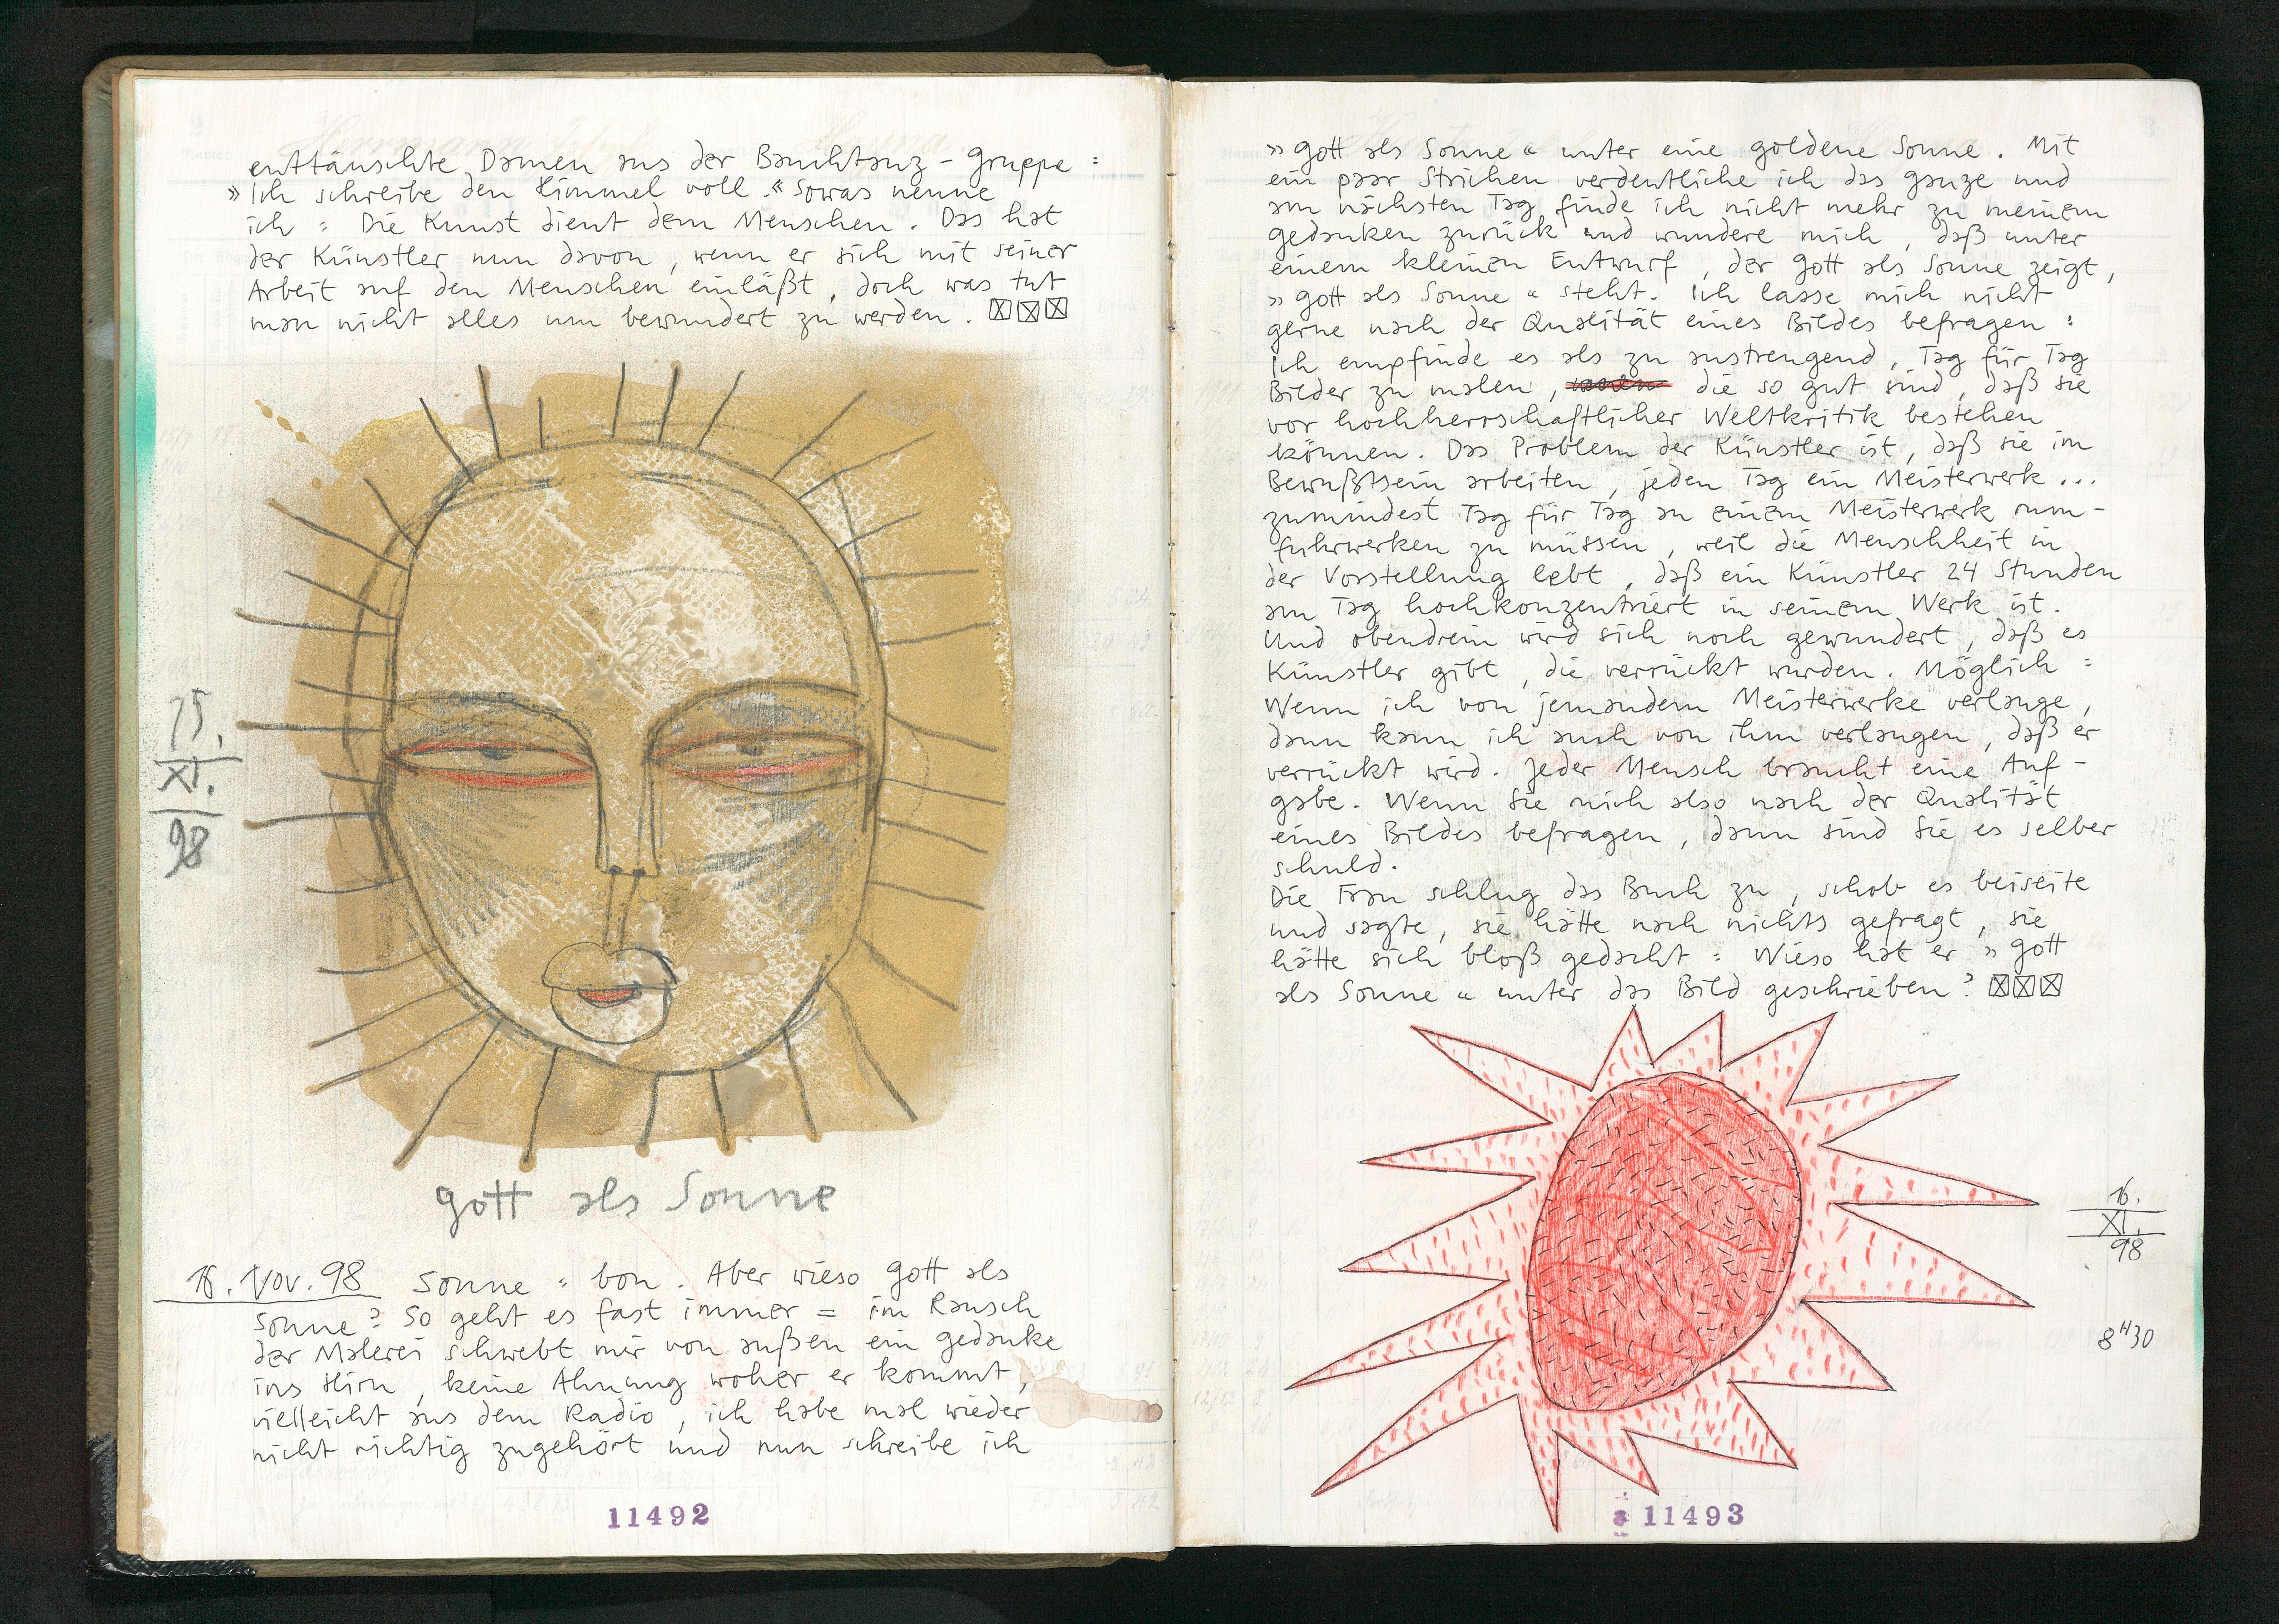 enttäuschte Damen aus der Bauchtanz-Gruppe:
»Ich schreibe den Himmel voll.« Sowas nenne
ich: Die Kunst dient dem Menschen. Das hat
der Künstler nun davon, wenn er sich mit seiner
Arbeit auf den Menschen einläßt, doch was tut
man nicht alles um bewundert zu werden. ☒☒☒
15.
XI.
98
Gott als Sonne
16. Nov. 98 Sonne: bon. Aber wieso Gott als
Sonne? So geht es fast immer = im Rausch
der Malerei schwebt mir von außen ein Gedanke
ins Hirn, keine Ahnung woher er kommt,
vielleicht aus dem Radio, ich habe mal wieder
nicht richtig zugehört und nun schreibe ich
11492
»Gott als Sonne« unter eine goldene Sonne. Mit
ein paar Strichen verdeutliche ich das ganze und
am nächsten Tag finde ich nicht mehr zu meinem
Gedanken zurück und wundere mich, daß unter
einem kleinen Entwurf, der Gott als Sonne zeigt,
»Gott als Sonne« steht. Ich lasse mich nicht
gerne nach der Qualität eines Bildes befragen:
Ich empfinde es als zu anstrengend, Tag für Tag
Bilder zu malen, die so gut sind, daß sie
vor hochherrschaftlicher Weltkritik bestehen
können. Das Problem der Künstler ist, daß sie im
Bewußtsein arbeiten, jeden Tag ein Meisterwerk...
zumindest Tag für Tag an einem Meisterwerk rum-
fuhrwerken zu müssen, weil die Menschheit in
der Vorstellung lebt, daß ein Künstler 24 Stunden
am Tag hochkonzentriert in seinem Werk ist.
Und obendrein wird sich noch gewundert, daß es
Künstler gibt, die verrückt wurden. Möglich:
Wenn ich von jemandem Meisterwerke verlange,
dann kann ich auch von ihm verlangen, daß er
verrückt wird. Jeder Mensch braucht eine Auf-
gabe. Wenn Sie mich also nach der Qualität
eines Bildes befragen, dann sind Sie es selber
schuld.
Die Frau schlug das Buch zu, schob es beiseite
und sagte, sie hätte nach nichts gefragt, sie
hätte sich bloß gedacht: Wieso hat er »Gott
als Sonne« unter das Bild geschrieben? ☒☒☒
16.
XI.
98
8H30
11493